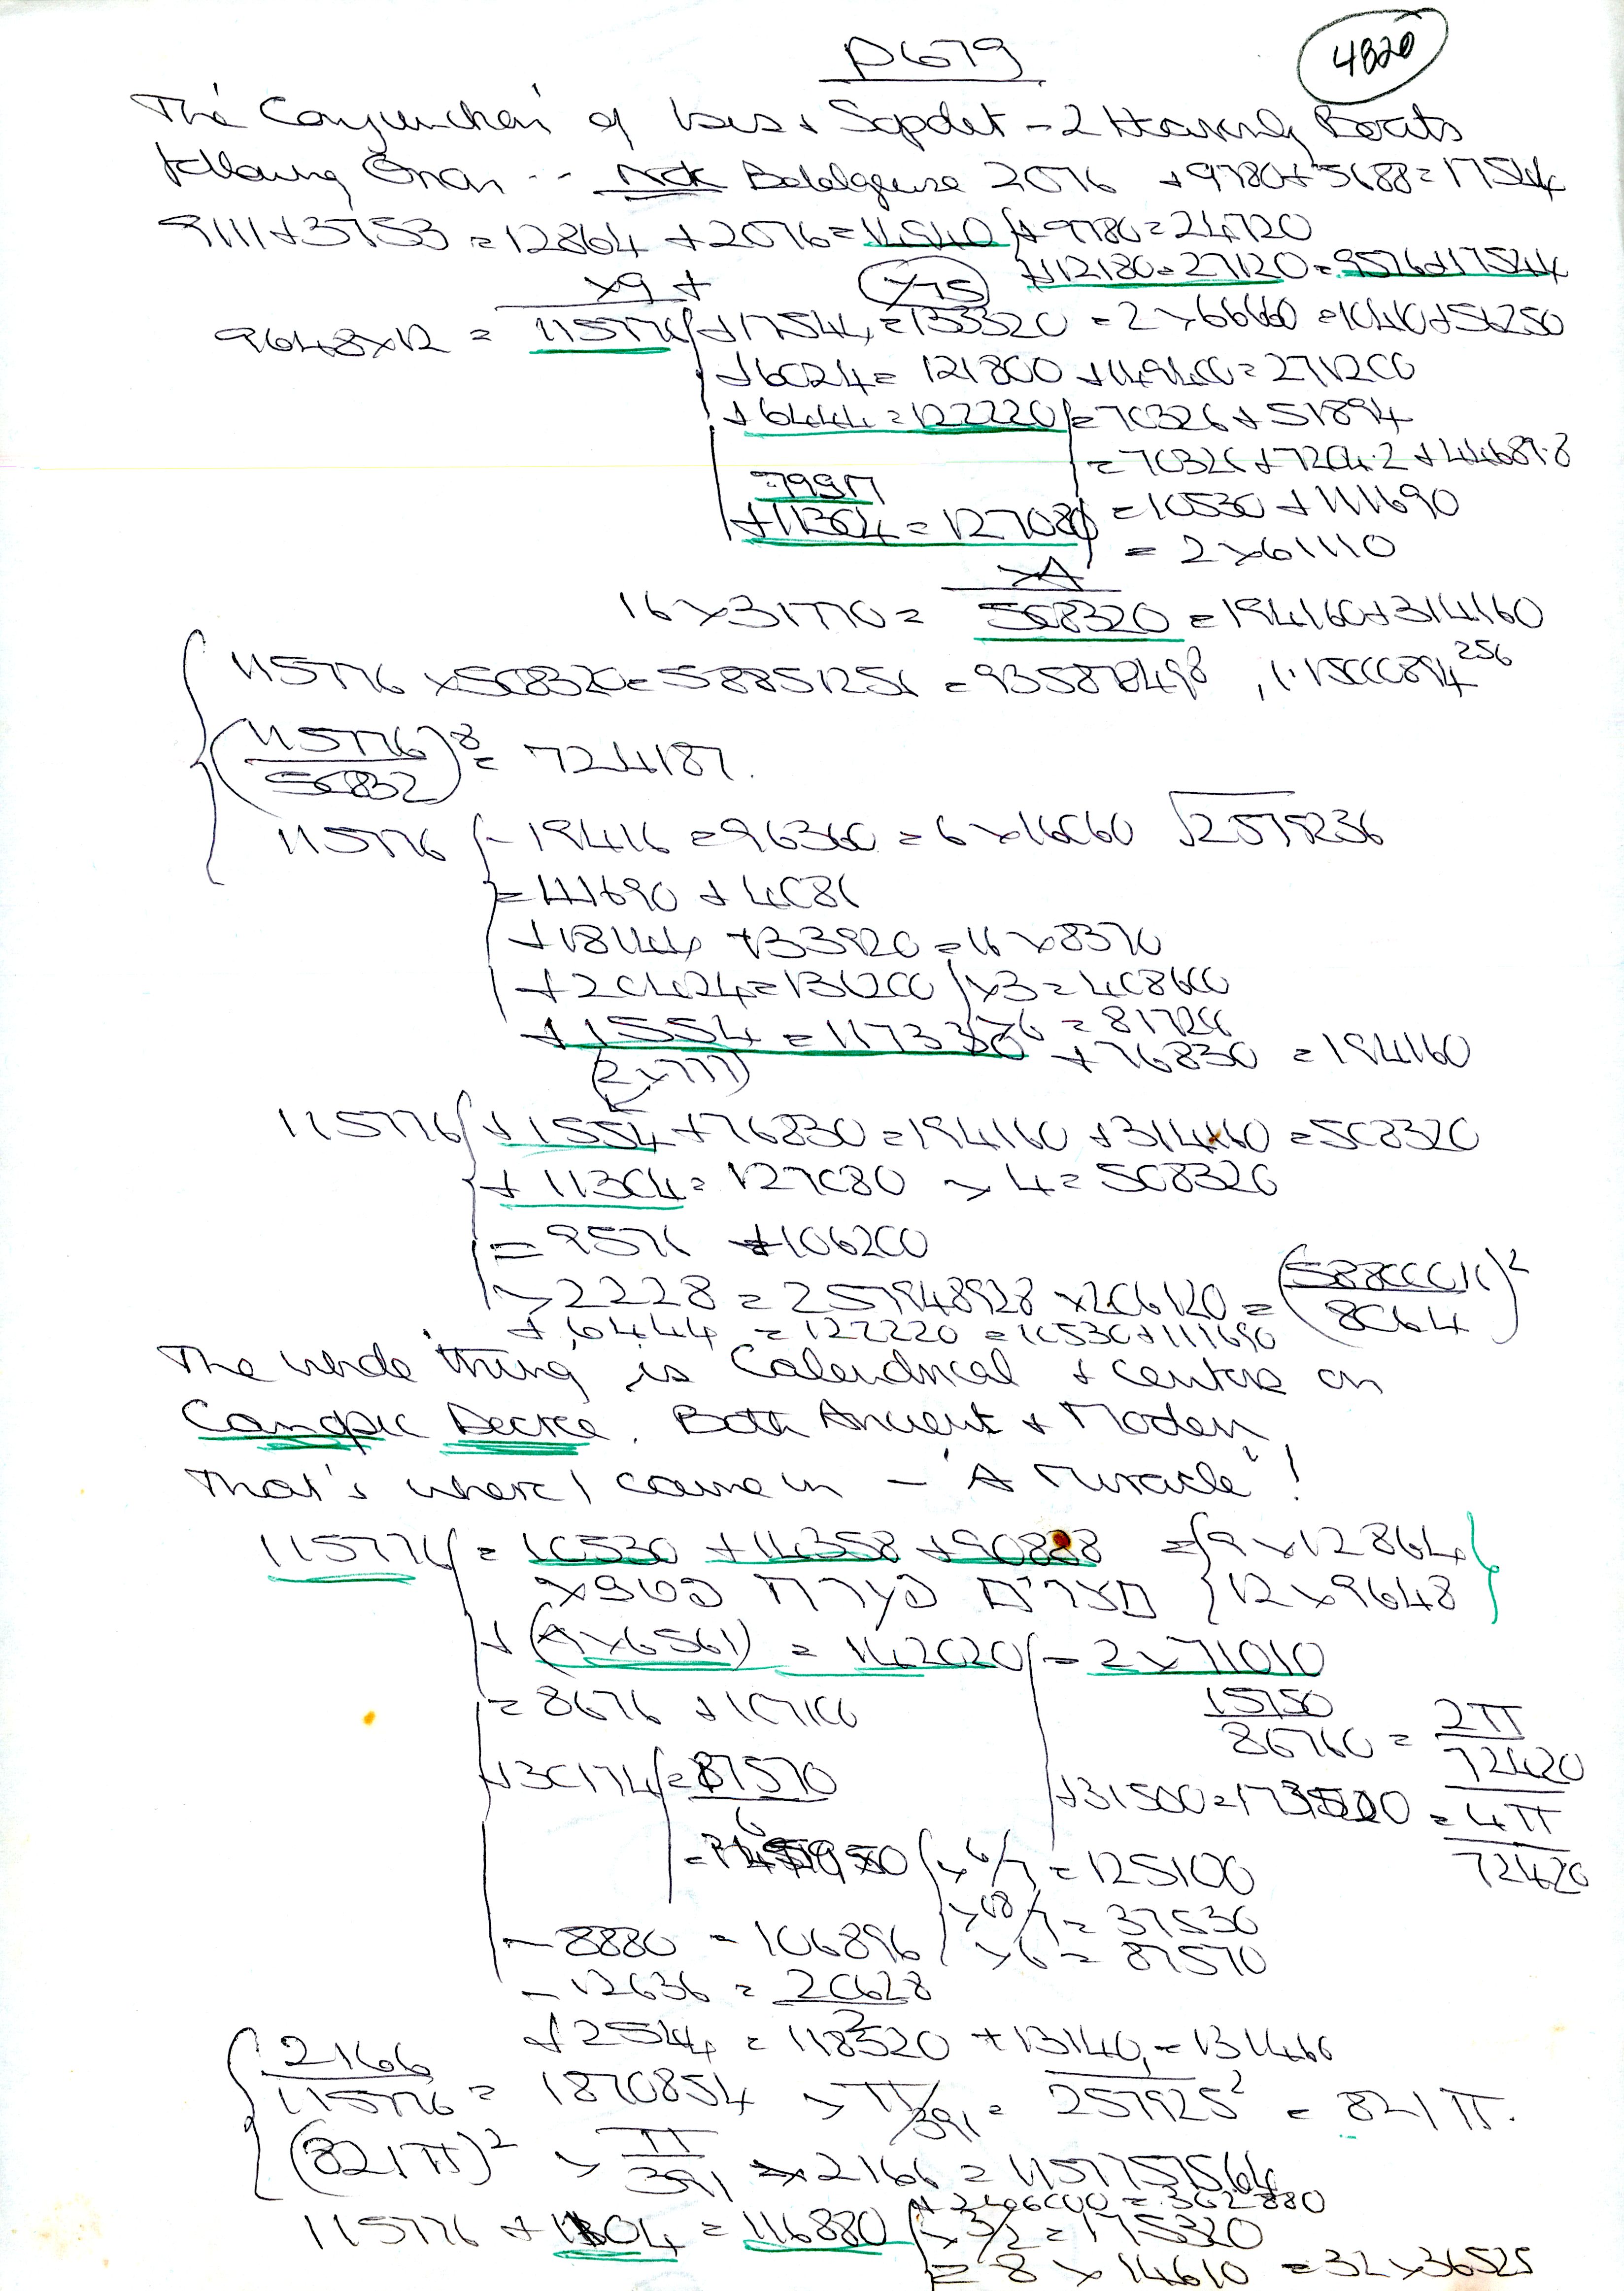 P679
4820
The Conjunction of Isis + Sopdet - 2 Heavenly Boats
following Orion -- Not Betelgeuse 2076 + 9780 + 5688 = 17544
9111 + 3753 = 12864 + 2076 = 14940 + 9780 = 24720
×9 + ×75 + 12180 = 27120 = 9576 + 17544
9648×12 = 115776 + 17544 = 133320 = 2 × 66660 = 10410 + 56250
+ 6024 = 121800 + 149400 = 271200
+ 6444 = 122220 = 70326 + 51894
= 70326 + 7204.2 + 44689.8
= 10530 + 111690
+ 11304 = 127080
= 2 × 61110
×4
16 × 31770 = 508320 = 194160 + 314160
115776 × 508320 = 58851256 = 93587849⁸ , 1.15000894²⁵⁶
(115776/50832)⁸ = 724187.
115776 - 19416 = 96360 = 6 × 16060 √2579236
= 111690 + 4086
+ 18144 = 133920 = 16 × 8370
+ 20424 = 136200 ×3 = 408600
×6 = 81720
+ 1554 = 117330 + 76830 = 194160
(2×777)
115776 + 1554 + 76830 = 194160 + 314160 = 508320
+ 11304 = 127080 × 4 = 508320
= 9576 + 106200
× 2228 = 257948928 × 206120 = (588000/8064)²
+ 6444 = 122220 = 10530 + 111690
The whole thing is Calendrical + centre on
Canopic Decree. Both Ancient + Modern
That's where I came in - 'A Miracle'!
115776 = 10530 + 14358 + 90888 = 9 × 12864
12 × 9648
+ (4×6561) = 142020 = 2 × 71010
= 8676 + 107100
15750/86760 = 2π/72420
+ 30174 = 87570/6
+ 31500 = 173520 = 4π/72420
×6/7 = 125100
×18/7 = 37530
×6 = 87570
- 8880 = 106896
- 12636 = 20628/2
+ 2544 = 118320 + 13140 = 131460
2166/115776 = 1870854 × π/391 = 257925² = 821π.
(821π)² × π/391 × 2166 = 1157757564
+ 246000 = 362880
115776 + 1104 = 116880 × 3/2 = 175320
= 8 × 14610 = 32 × 36525